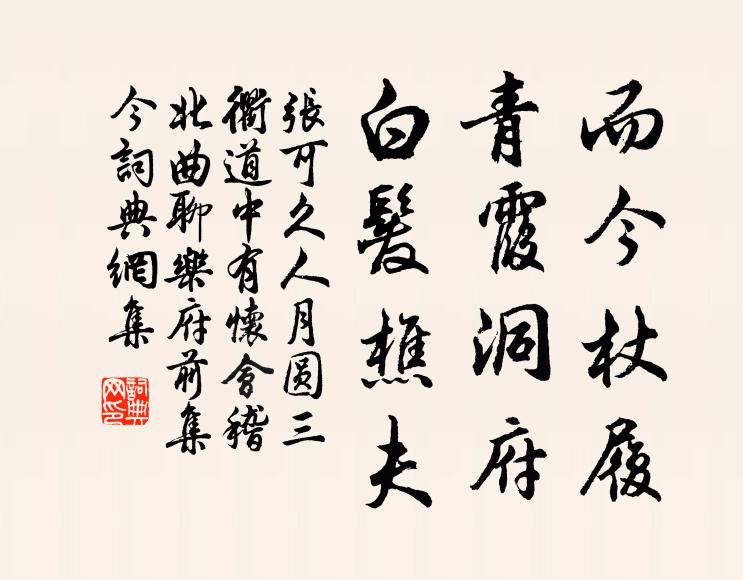 而今杖履
青霞洞府
白髮樵夫
張可久人月圆三
衢道中有懷會稽
北曲聊樂府前集
今詞典網集
詞典網印